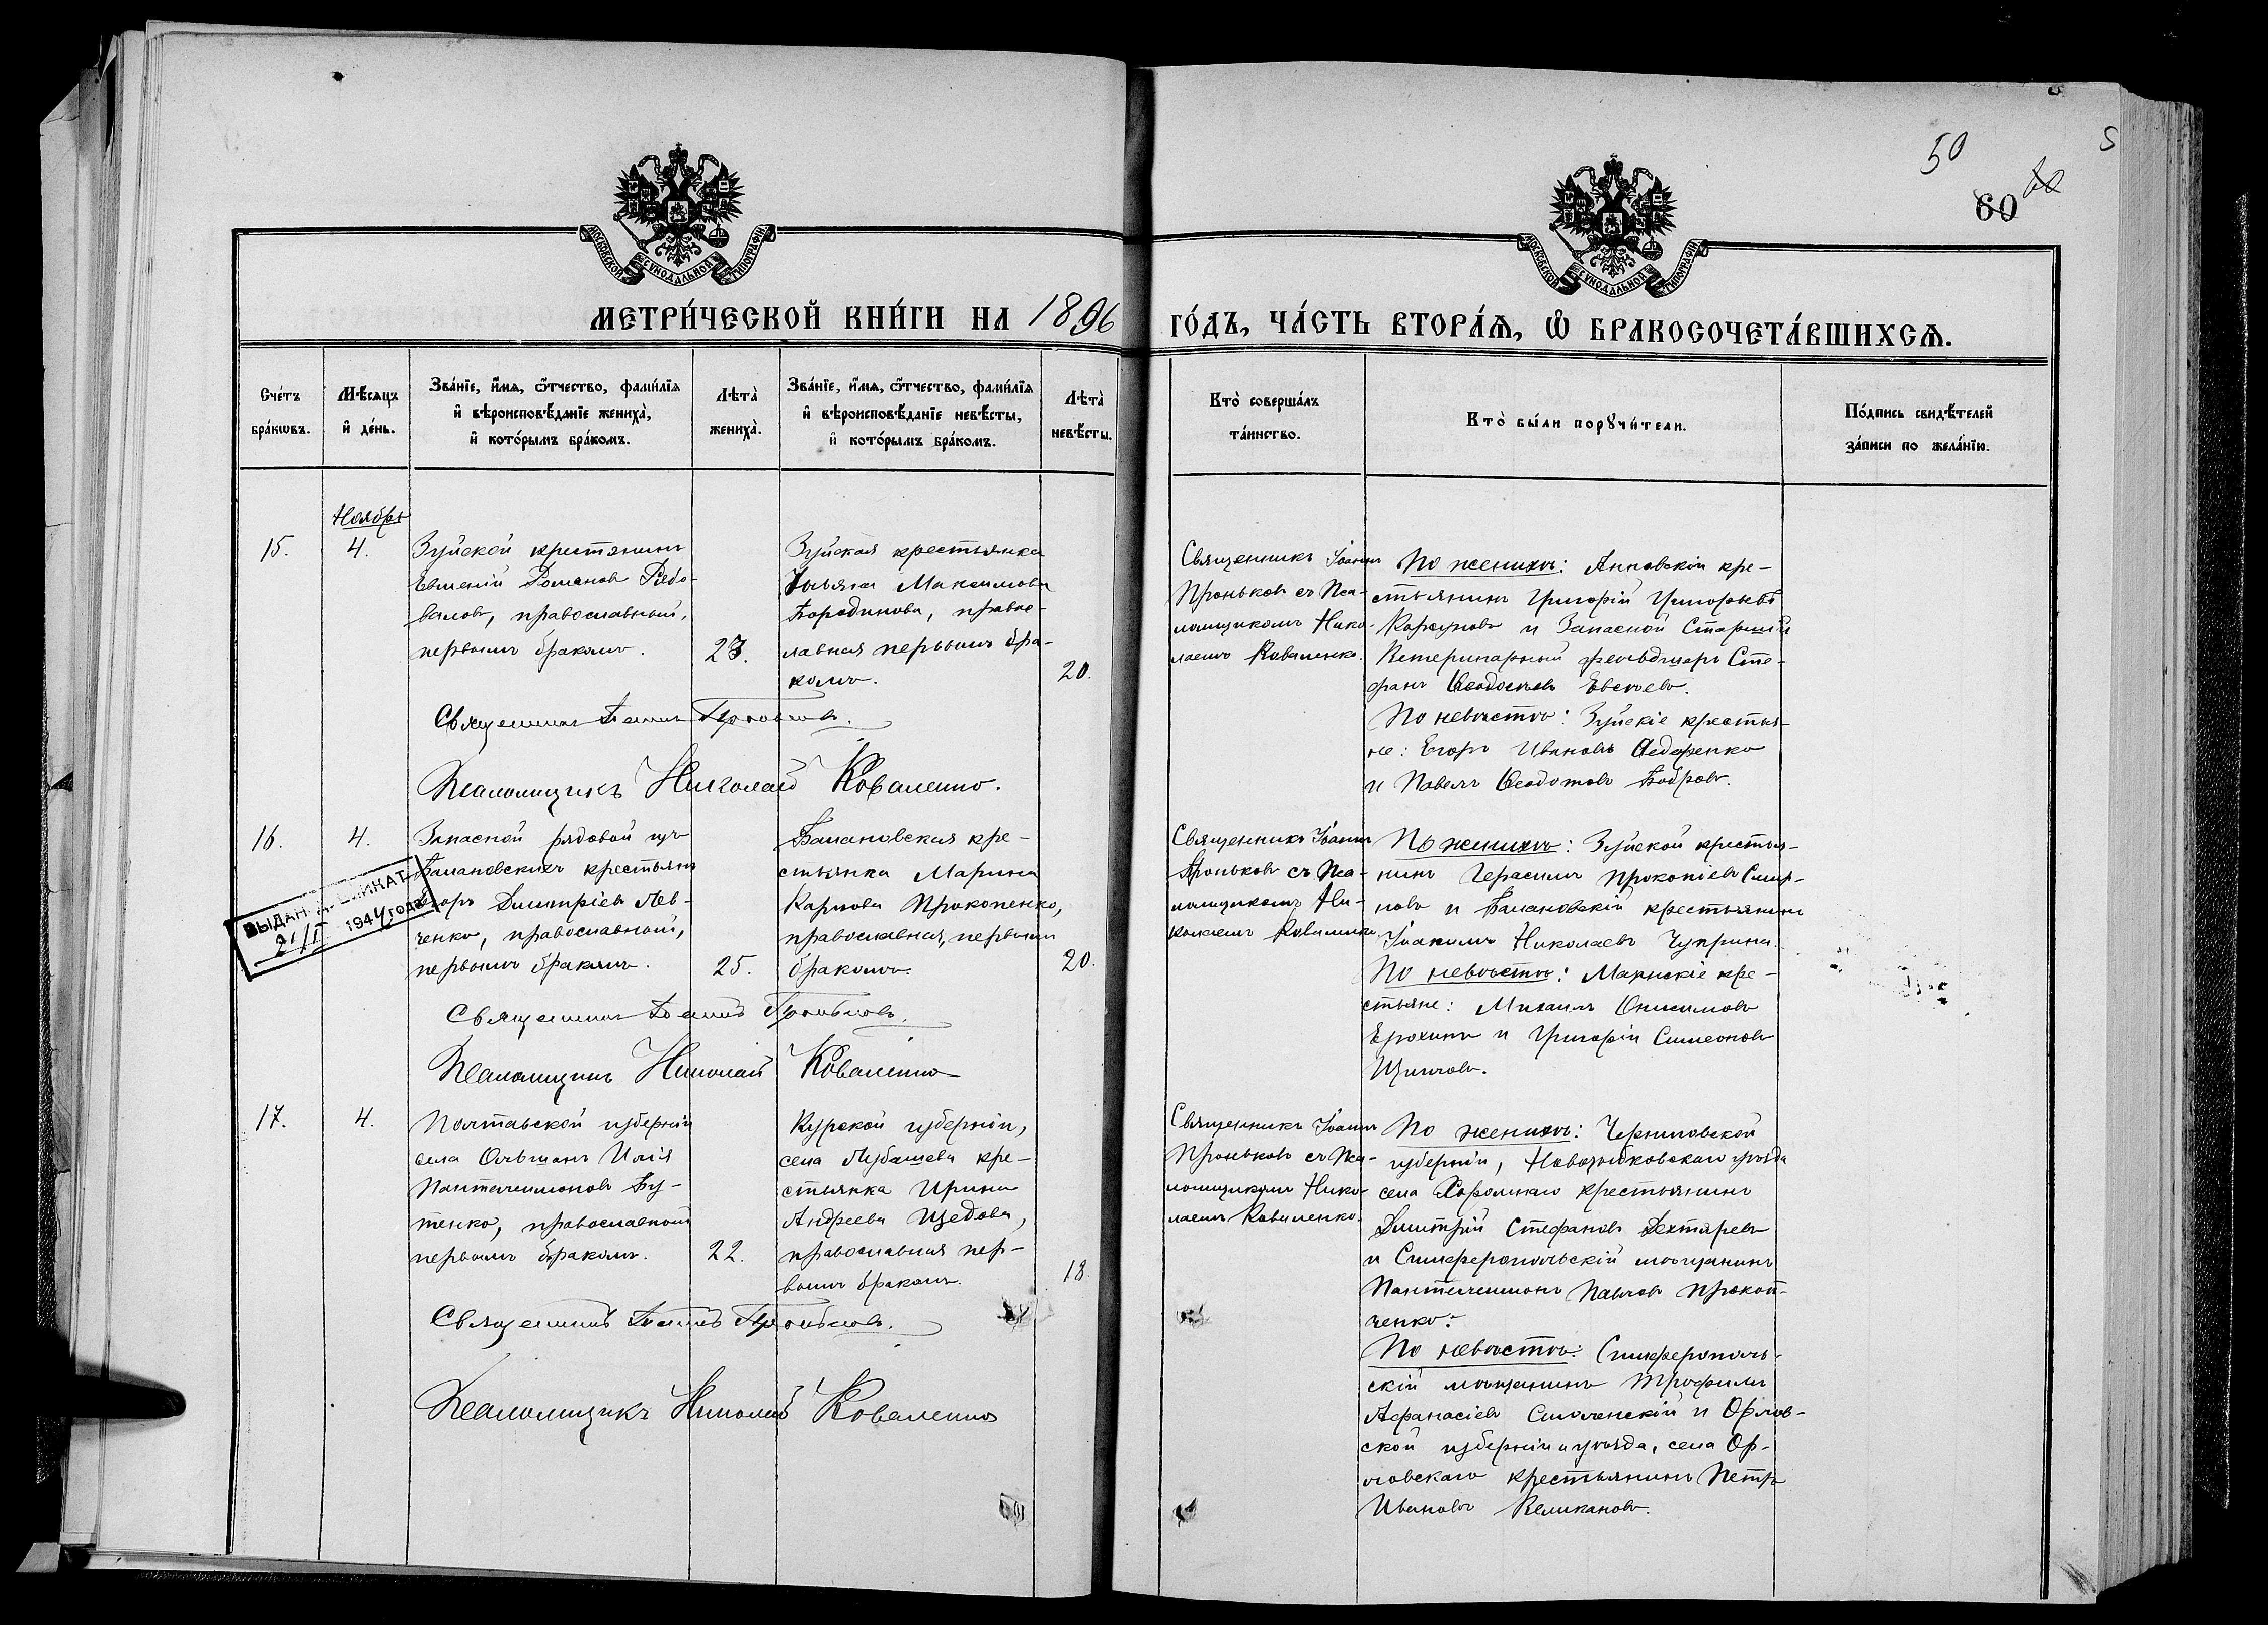 50
60
МОСКОВСКОЙ СѴНОДАЛЬНОЙ ТИПОГРАФІИ
МОСКОВСКОЙ СѴНОДАЛЬНОЙ ТИПОГРАФІИ
МЕТРИ́ЧЕСКОЙ КНИ́ГИ НА 1896
ГО́ДЪ, ЧА́СТЬ ВТОРА́Ѧ, Ѽ БРАКОСОЧЕТА́ВШИХСѦ.
Сче́тъ
бра́кѡвъ.
Мѣ́сѧцъ
и҆ де́нь.
Зва́нїе, и҆́мѧ, ѻ҆́тчество, фами́лїѧ
и҆ вѣроисповѣ́данїе жениха̀,
и҆ кото́рымъ бра́комъ.
Лѣта̀
жениха̀.
Зва́нїе, и҆́мѧ, ѻ҆́тчество, фами́лїѧ
и҆ вѣроисповѣ́данїе невѣ́сты,
и҆ кото́рымъ бра́комъ.
Лѣта̀
невѣ́сты.
Кто̀ соверша́лъ
та́инство.
Кто̀ бы́ли порꙋчи́тели.
По́дпись свидѣ́телей
за́писи по жела́нїю.
Ноябрь
15.
4.
Зуйской крестянинъ
Евменій Романов Рябо-
валовъ, православный,
первымъ бракомъ.
23.
Зуйская крестьянка
Ульяна Максимова
Бородинова, правос-
лавная первымъ бра-
комъ.
20.
Священникъ Іоаннъ
Проньковъ съ Пса-
ломщикомъ Нико-
лаемъ Коваленко.
По женихѣ: Анновскій кре-
стьянинъ Григорій Григорьевъ
Коржуновъ и Запасной Старшій
Ветеринарный фельдшеръ Сте-
фанъ Ѳеодосьевъ Евсѣевъ.
По невѣстѣ: Зуйскіе крестья-
не: Егоръ Ивановъ Ѳедоренко
и Павелъ Ѳеодотовъ Бобровъ.
Священникъ Іоаннъ Проньковъ.
Псаломщикъ Николай Коваленко.
16.
4.
Запасной рядовой изъ
Балановскихъ крестьянъ
Ѳедоръ Димитріевъ Лев-
ченко, православный,
первымъ бракомъ.
25.
Балановская кре-
стьянка Марина
Карпова Прокопенко,
православная, первымъ
бракомъ.
20.
Священникъ Іоаннъ
Проньковъ съ Пса-
ломщикомъ Ни-
колаемъ Коваленко.
По женихѣ: Зуйской крестья-
нинъ Герасимъ Прокопіевъ Смир-
новъ и Балановскій крестьянинъ
Іоакимъ Николаевъ Чуприна.
По невѣстѣ: Маринскіе кре-
стьяне: Михаилъ Онисимовъ
Ерохинъ и Григорій Симеоновъ
ВЫДАН ДУБЛИКАТ
21/I 1944 года
Священникъ Іоаннъ Проньковъ.
Псаломщикъ Николай Коваленко
17.
4.
Полтавской губерніи
села Ольшанъ Илія
Пантелеимоновъ Бу-
тенко, православный
первымъ бракомъ.
22.
Курской губерніи,
села Лубашева кре-
стьянка Ирина
Андреева Щедова,
православная пер-
вымъ бракомъ.
18.
Священникъ Іоаннъ
Проньковъ съ Пса-
ломщикомъ Нико-
лаемъ Коваленко.
По женихѣ: Черниговской
губерніи, Новозыбковскаго уѣзда
села Хоромнаго крестьянинъ
Димитрій Стефановъ Дехтяревъ
и Симферопольскій мѣщанинъ
Пантелеимонъ Павловъ Прокоп-
ченко.
По невѣстѣ: Симферополь-
скій мѣщанинъ Трофимъ
Афанасіевъ Смоленскій и Орлов-
ской губерніи и уѣзда, села Ор-
ловскаго крестьянинъ Петръ
Ивановъ Великановъ.
Священникъ Іоаннъ Проньковъ.
Псаломщикъ Николай Коваленко